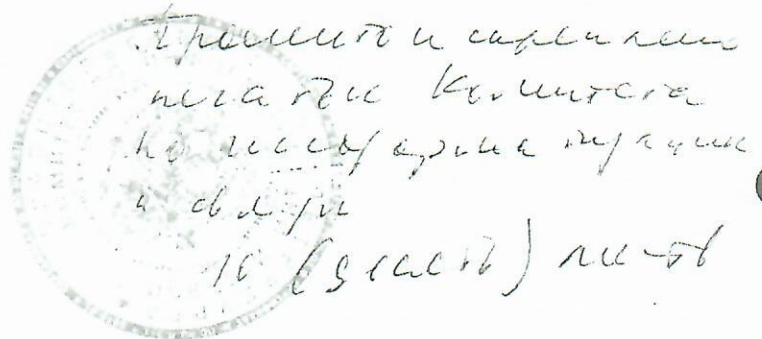 Прошито и скреплено
печатью Комитета
по информатизации
и связи
10 (десять) л-в